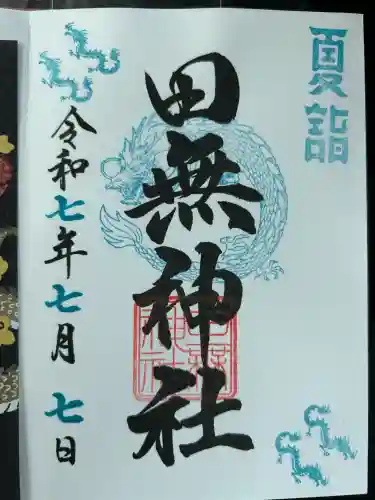 夏詣
田無神社
令和七年七月七日
田無神社